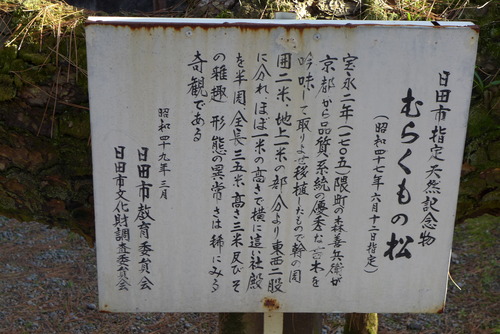 日田市指定天然記念物
むらくもの松
(昭和四十七年六月十二日指定)
宝永二年(一七〇五)隈町の森善兵衛が
京都から品質、系統の優秀な苗木を
吟味して取りよせ移植したもので幹の周
囲二米、地上一米の部分より東西二股
に分れ、ほぼ一米の高さで横に這い社殿
を半周、全長三五米、高さ三米及びそ
の雅趣、形態の異常さは稀にみる
奇観である
昭和四十九年三月
日田市教育委員会
日田市文化財調査委員会